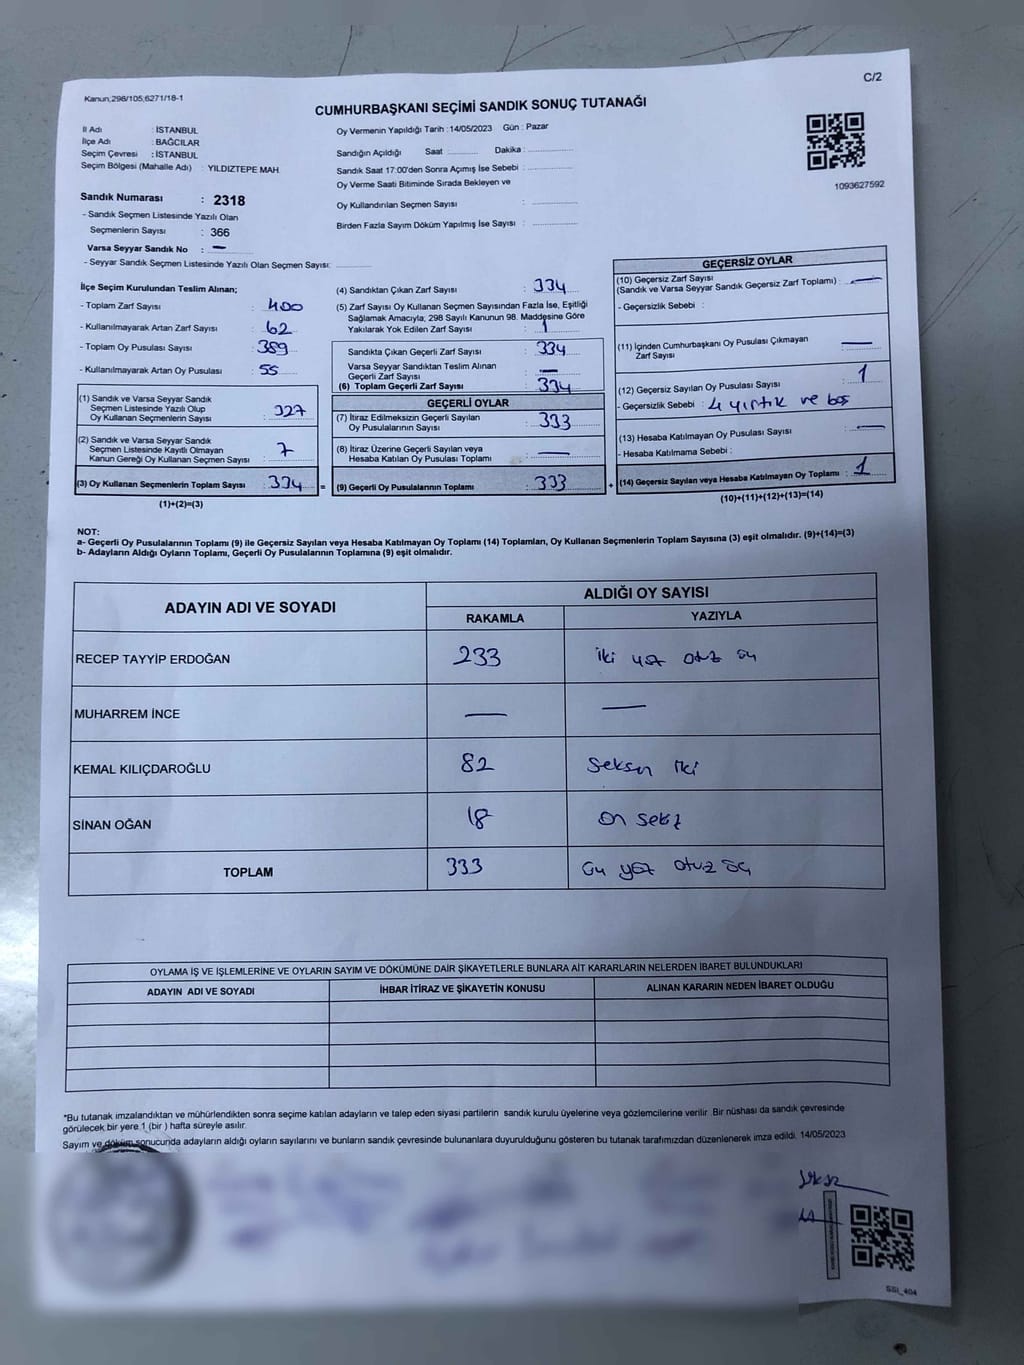 C/2
Kanun;298/105;6271/18-1
CUMHURBAŞKANI SEÇİMİ SANDIK SONUÇ TUTANAĞI
İl Adı : İSTANBUL
İlçe Adı : BAĞCILAR
Seçim Çevresi : İSTANBUL
Seçim Bölgesi (Mahalle Adı) : YILDIZTEPE MAH.
Sandık Numarası : 2318
- Sandık Seçmen Listesinde Yazılı Olan
Seçmenlerin Sayısı : 366
Varsa Seyyar Sandık No : —
- Seyyar Sandık Seçmen Listesinde Yazılı Olan Seçmen Sayısı:
Oy Vermenin Yapıldığı Tarih : 14/05/2023 Gün : Pazar
Sandığın Açıldığı Saat : Dakika :
Sandık Saat 17:00'den Sonra Açımış İse Sebebi :
Oy Verme Saati Bitiminde Sırada Bekleyen ve
Oy Kullandırılan Seçmen Sayısı :
Birden Fazla Sayım Döküm Yapılmış İse Sayısı :
1093627592
İlçe Seçim Kurulundan Teslim Alınan;
- Toplam Zarf Sayısı : 400
- Kullanılmayarak Artan Zarf Sayısı : 62
- Toplam Oy Pusulası Sayısı : 389
- Kullanılmayarak Artan Oy Pusulası : 55
(1) Sandık ve Varsa Seyyar Sandık
Seçmen Listesinde Yazılı Olup
Oy Kullanan Seçmenlerin Sayısı : 327
(2) Sandık ve Varsa Seyyar Sandık
Seçmen Listesinde Kayıtlı Olmayan
Kanun Gereği Oy Kullanan Seçmen Sayısı : 7
(3) Oy Kullanan Seçmenlerin Toplam Sayısı : 334 =
(1)+(2)=(3)
(4) Sandıktan Çıkan Zarf Sayısı : 334
(5) Zarf Sayısı Oy Kullanan Seçmen Sayısından Fazla İse, Eşitliği
Sağlamak Amacıyla, 298 Sayılı Kanunun 98. Maddesine Göre
Yakılarak Yok Edilen Zarf Sayısı : 1
Sandıkta Çıkan Geçerli Zarf Sayısı : 334
Varsa Seyyar Sandıktan Teslim Alınan
Geçerli Zarf Sayısı : —
(6) Toplam Geçerli Zarf Sayısı : 334
GEÇERLİ OYLAR
(7) İtiraz Edilmeksizin Geçerli Sayılan
Oy Pusulalarının Sayısı : 333
(8) İtiraz Üzerine Geçerli Sayılan veya
Hesaba Katılan Oy Pusulası Toplamı : —
(9) Geçerli Oy Pusulalarının Toplamı : 333 +
GEÇERSİZ OYLAR
(10) Geçersiz Zarf Sayısı
(Sandık ve Varsa Seyyar Sandık Geçersiz Zarf Toplamı) : —
- Geçersizlik Sebebi :
(11) İçinden Cumhurbaşkanı Oy Pusulası Çıkmayan
Zarf Sayısı : —
(12) Geçersiz Sayılan Oy Pusulası Sayısı : 1
- Geçersizlik Sebebi : 4 yırtık ve boş
(13) Hesaba Katılmayan Oy Pusulası Sayısı : —
- Hesaba Katılmama Sebebi :
(14) Geçersiz Sayılan veya Hesaba Katılmayan Oy Toplamı : 1
(10)+(11)+(12)+(13)=(14)
NOT:
a- Geçerli Oy Pusulalarının Toplamı (9) ile Geçersiz Sayılan veya Hesaba Katılmayan Oy Toplamı (14) Toplamları, Oy Kullanan Seçmenlerin Toplam Sayısına (3) eşit olmalıdır. (9)+(14)=(3)
b- Adayların Aldığı Oyların Toplamı, Geçerli Oy Pusulalarının Toplamına (9) eşit olmalıdır.
ADAYIN ADI VE SOYADI ALDIĞI OY SAYISI
RAKAMLA YAZIYLA
RECEP TAYYİP ERDOĞAN 233 iki yüz otuz üç
MUHARREM İNCE — —
KEMAL KILIÇDAROĞLU 82 seksen iki
SİNAN OĞAN 18 on sekiz
TOPLAM 333 üç yüz otuz üç
OYLAMA İŞ VE İŞLEMLERİNE VE OYLARIN SAYIM VE DÖKÜMÜNE DAİR ŞİKAYETLERLE BUNLARA AİT KARARLARIN NELERDEN İBARET BULUNDUKLARI
ADAYIN ADI VE SOYADI İHBAR İTİRAZ VE ŞİKAYETİN KONUSU ALINAN KARARIN NEDEN İBARET OLDUĞU
*Bu tutanak imzalandıktan ve mühürlendikten sonra seçime katılan adayların ve talep eden siyasi partilerin sandık kurulu üyelerine veya gözlemcilerine verilir. Bir nüshası da sandık çevresinde
görülecek bir yere 1 (bir ) hafta süreyle asılır.
Sayım ve döküm sonucunda adayların aldığı oyların sayılarını ve bunların sandık çevresinde bulunanlara duyurulduğunu gösteren bu tutanak tarafımızdan düzenlenerek imza edildi. 14/05/2023